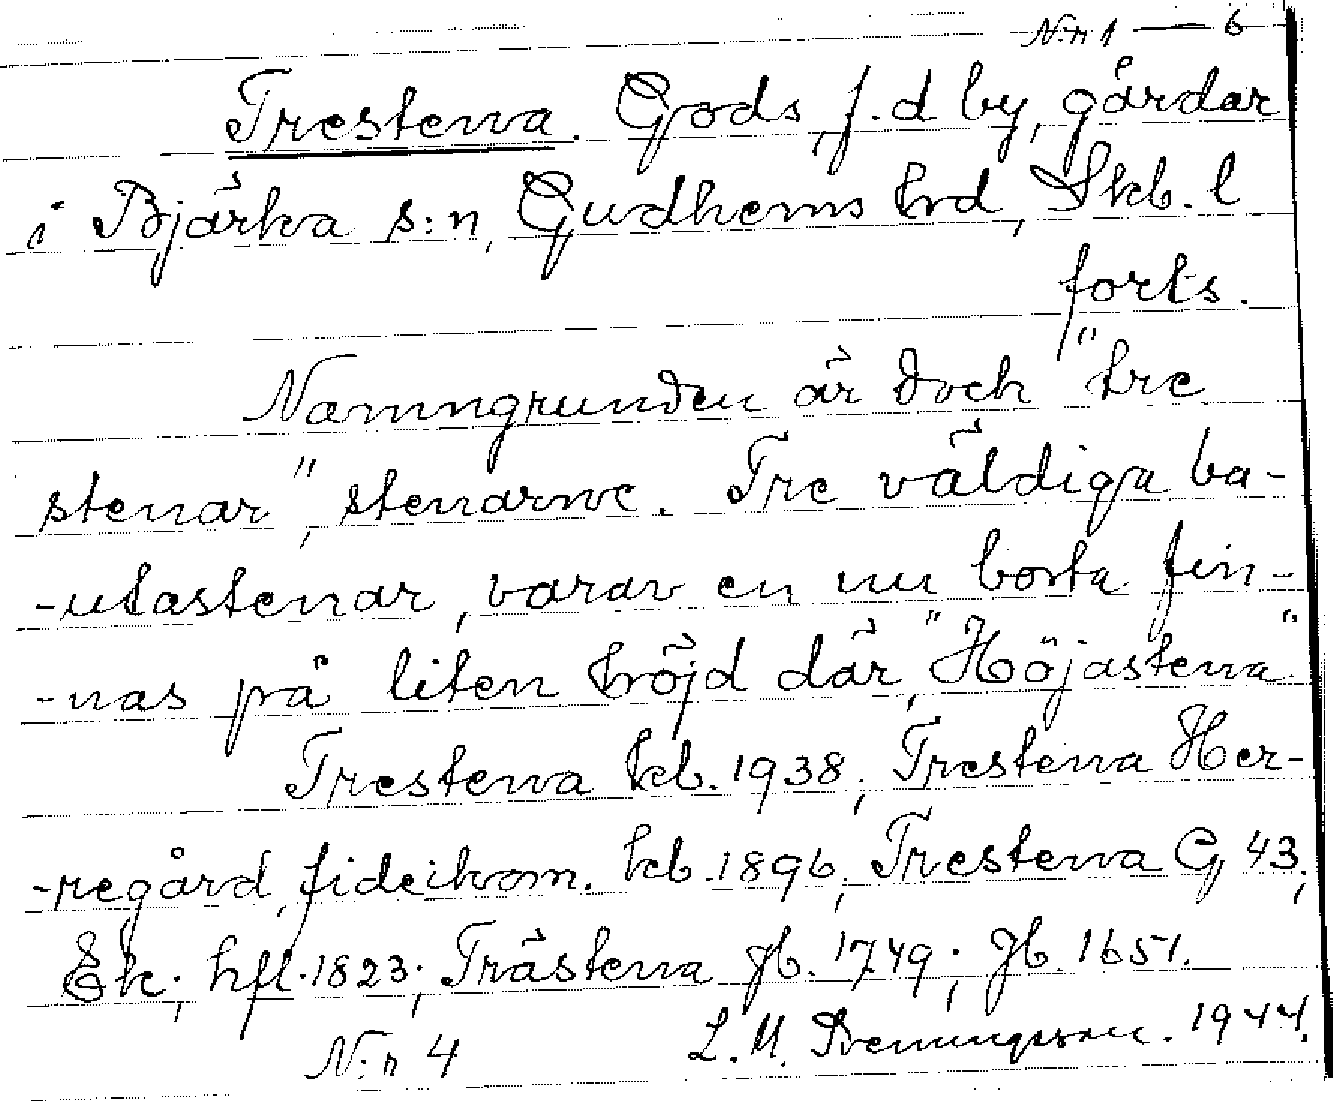 N:r 1 — 6
Trestena. Gods, f.d by, gårdar
i Bjärka s:n, Gudhems hd, Skb. l
forts.
Namngrunden är dock "tre
stenar", stenarne. Tre väldiga ba-
-utastenar, varav en nu borta fin-
-nas på liten höjd där, "Höjastena"
Trestena kb. 1938; Trestena Her-
-regård, fideikom. kb. 1896; Trestena G 43;
Ek; hfl. 1823; Trästena jb. 1749; jb. 1651.
N:r 4 L. M. 1944.